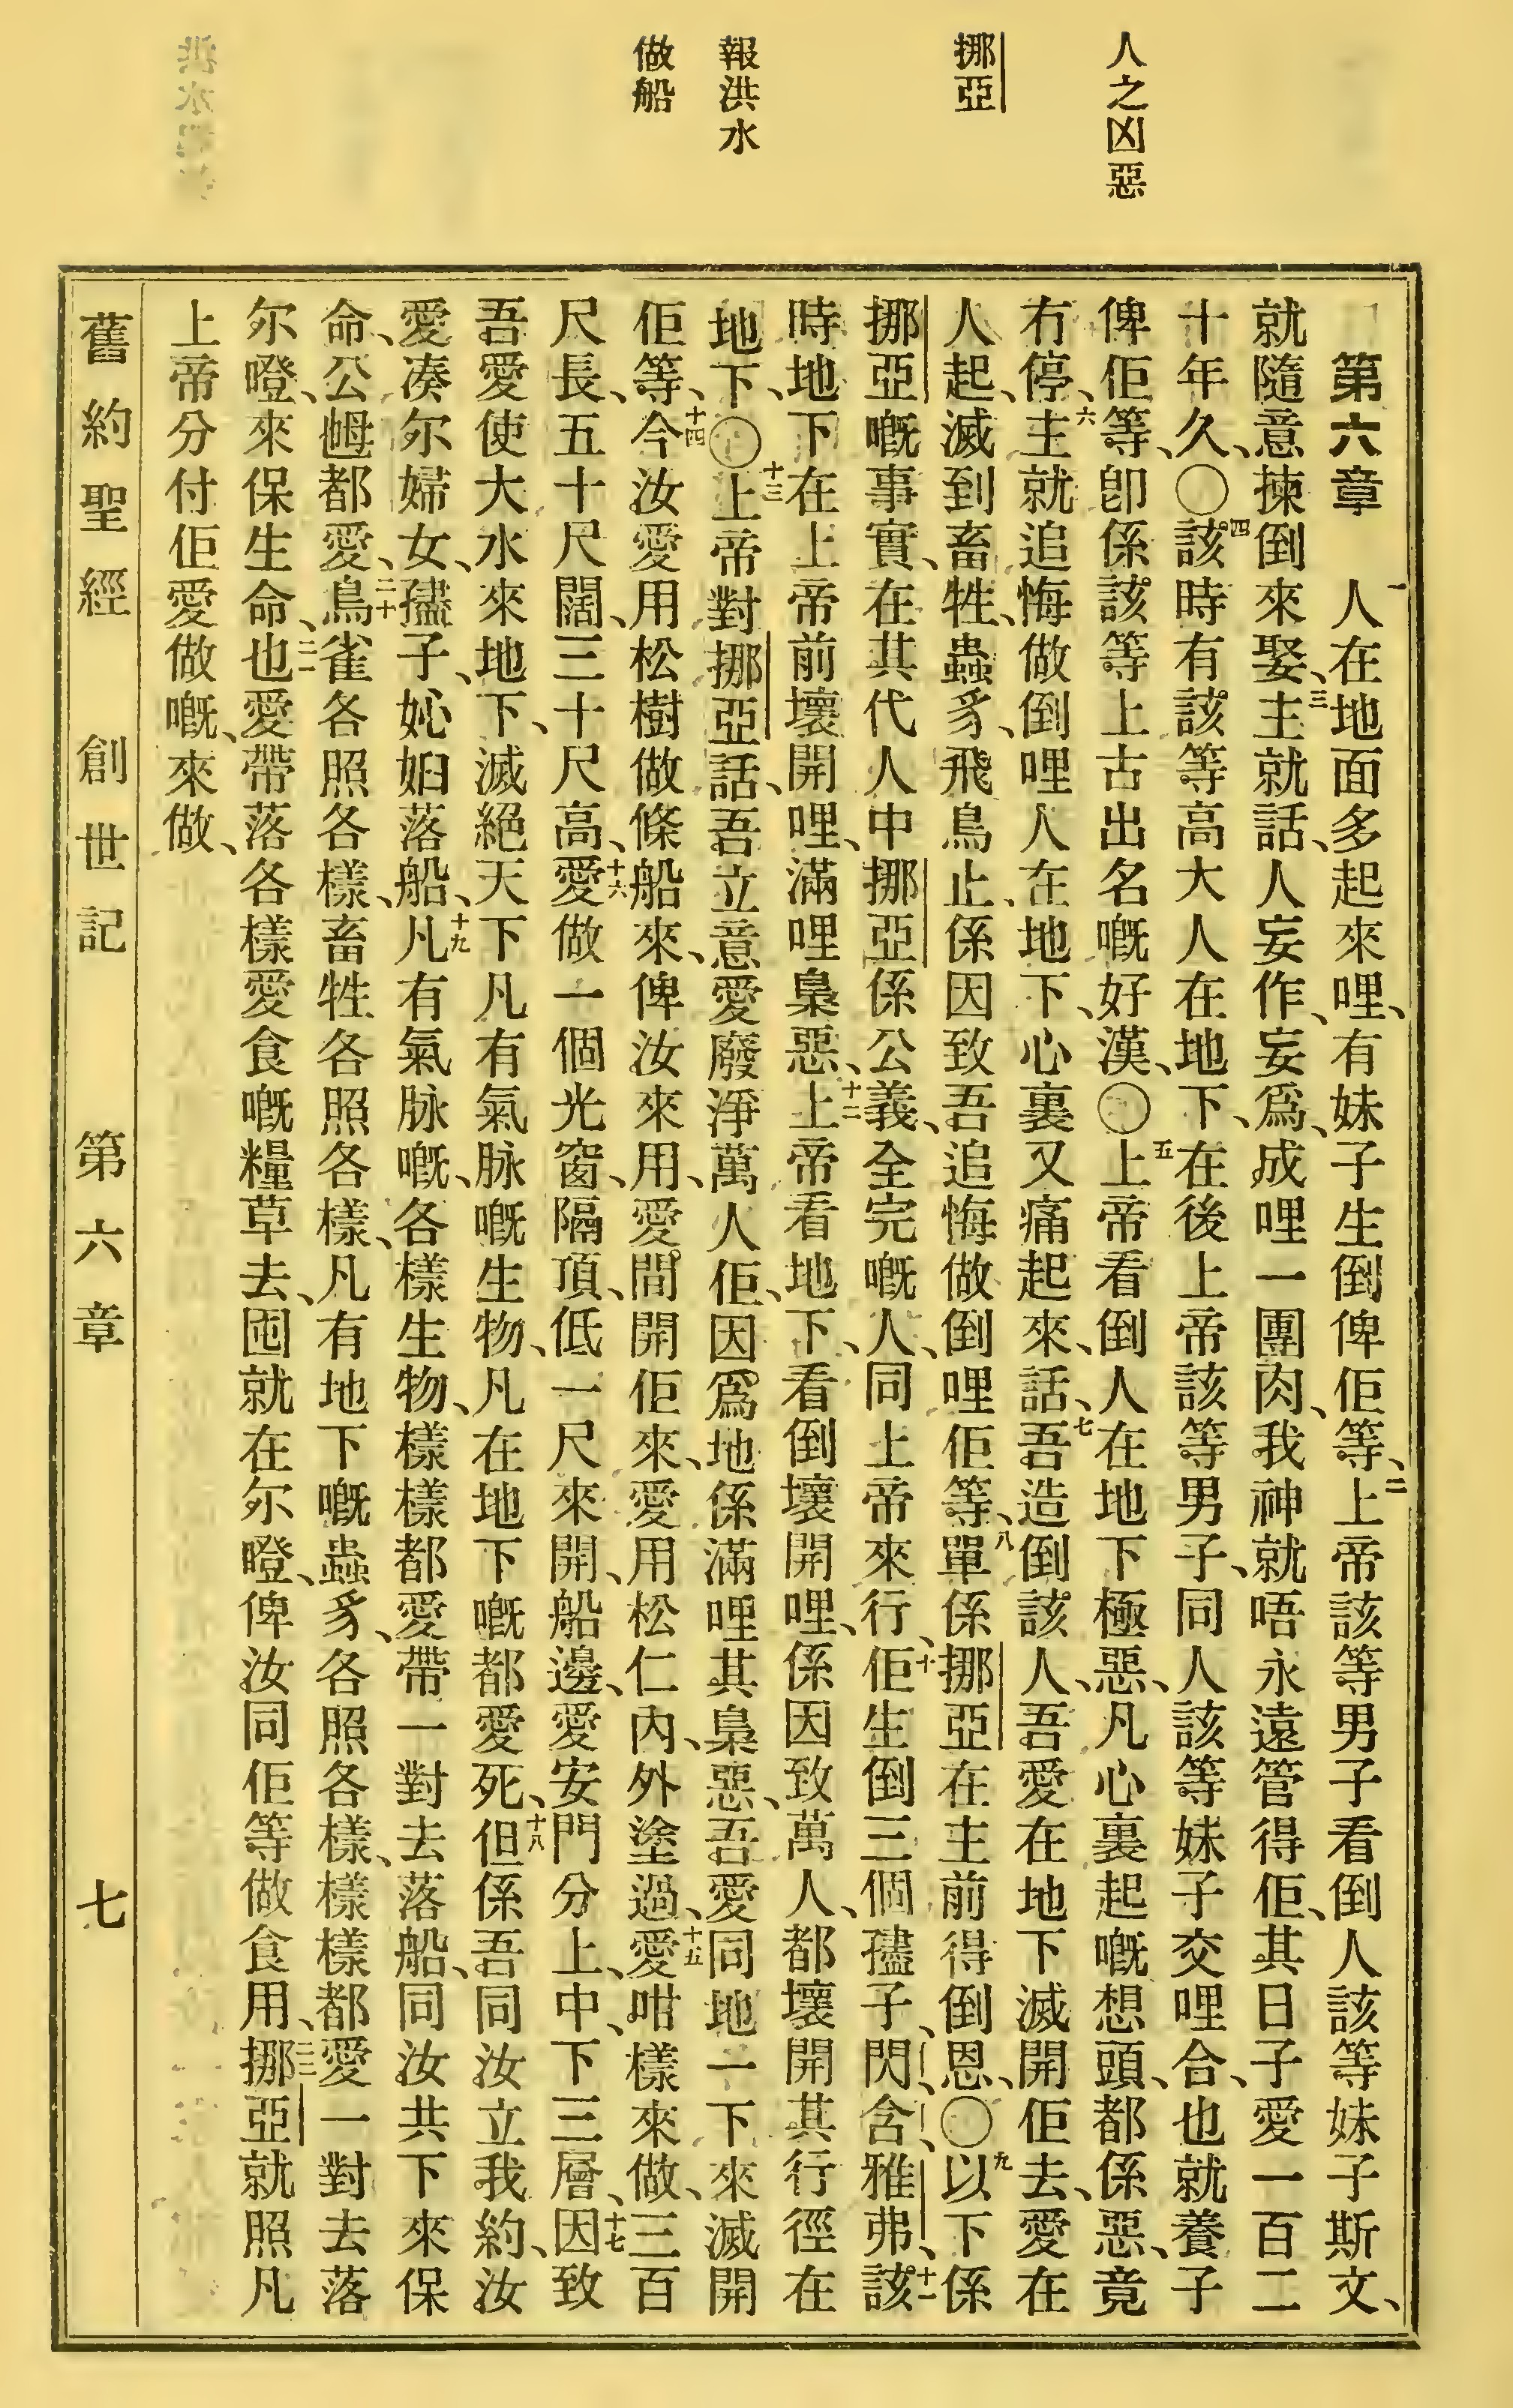 人之凶惡
挪亞
報洪水
做船
第六章 一人在地面多起來哩、有妹子生倒俾佢等、二上帝該等男子看倒人該等妹子斯文、
就隨意揀倒來娶、三主就話、人妄作、妄為、成哩一團肉、我神就唔永遠管得佢、其日子愛一百二
十年久、〇四該時有該等高大人在地下、在後上帝該等男子、同人該等妹子交哩合、也就養子
俾佢等、卽係該等上古出名嘅好漢、〇五上帝看倒人在地下極惡、凡心裏起嘅想頭、都係惡、竟
冇停、六主就追悔做倒哩人在地下、心裏又痛起來、話、七吾造倒該人、吾愛在地下滅開佢去、愛在
人起、滅到畜牲、蟲豸、飛鳥止、係因致吾追悔做倒哩佢等、八單係挪亞在主前得倒恩、〇九以下係
挪亞嘅事實、在其代人中挪亞係公義、全完嘅人、同上帝來行、十佢生倒三個孻子、閃、含、雅弗、十一該
時地下在上帝前壞開哩、滿哩梟惡、十二上帝看地下、看倒壞開哩、係因致萬人、都壞開其行徑在
地下、〇十三上帝對挪亞話、吾立意愛廢淨萬人佢、因爲地係滿哩其梟惡、吾愛同地一下來滅開
佢等、十四今汝愛用松樹做條船來、俾汝來用、愛間開佢來、愛用松仁內、外塗過、十五愛咁樣來做、三百
尺長、五十尺闊、三十尺高、十六愛做一個光窗、隔頂、低一尺來開、船邊、愛安門分上、中、下三層、十七因致
吾愛使大水來地下、滅絕天下凡有氣脉嘅生物、凡在地下嘅都愛死、十八但係吾同汝立我約、汝
愛凑尔婦女、孻子、妣婦落船、十九凡有氣脉嘅、各樣生物、樣樣都愛帶一對去落船、同汝共下來保
命、公𡜵都愛、二十鳥雀各照各樣、畜牲各照各樣、凡有地下嘅蟲豸、各照各樣、樣樣都愛一對去落
尔瞪、來保生命、二一也愛帶落各樣愛食嘅糧草去、囤就在尔瞪、俾汝同佢等做食用、二二挪亞就照凡
上帝分付佢愛做嘅、來做、
舊約聖經 創世記 第六章 七